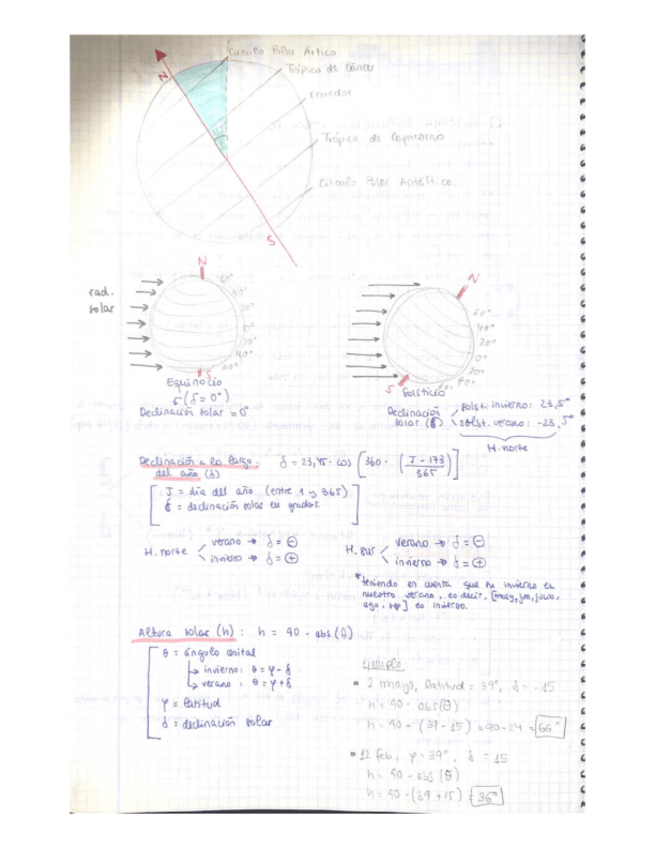 Círculo Polar Ártico
Trópico de Cáncer
N
Ecuador
Trópico de Capricornio
Círculo Polar Antártico.
S
N
60°
40°
20°
0°
20°
40°
60°
S
rad.
solar
Equinocio
(δ = 0°)
Declinación solar = 0°
N
60°
40°
20°
0°
20°
40°
60°
S
Solsticio
Declinación solar (δ)
solst. invierno: 23,5°
solst. verano: -23,5°
H. norte
Declinación a lo largo
del año (δ)
δ = 23,45 · cos [360 · (J - 173 / 365)]
J = día del año (entre 1 y 365)
δ = declinación solar en grados.
H. norte
verano → δ = ⊖
invierno → δ = ⊕
H. sur
verano → δ = ⊖
invierno → δ = ⊕
*teniendo en cuenta que su invierno es
nuestro verano, es decir, [may, jun, julio,
ago, sep] es invierno.
Altura solar (h): h = 90 - abs (θ)
θ = ángulo cenital
invierno: θ = φ - δ
verano: θ = φ + δ
φ = latitud
δ = declinación solar
ejemplo
2 mayo, latitud = 39°, δ = -15
h = 90 - abs(θ)
h = 90 - (39 - 15) = 90 - 24 = 66°
12 feb, φ = 39°, δ = 15
h = 90 - abs (θ)
h = 90 - (39 + 15) = 36°